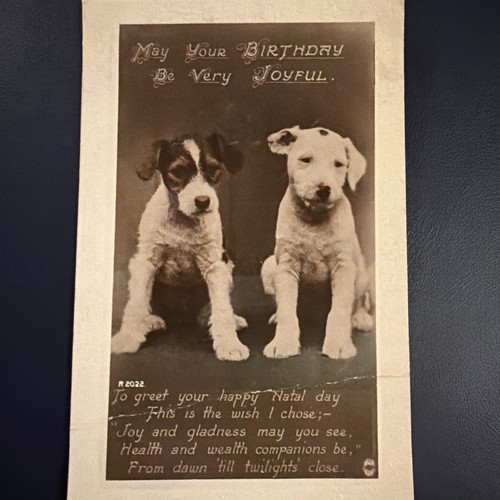 May Your BIRTHDAY
Be Very JOYFUL.
R 2022.
To greet your happy Natal day
This is the wish I chose;-
"Joy and gladness may you see,
Health and wealth companions be,"
From dawn 'till twilights' close.